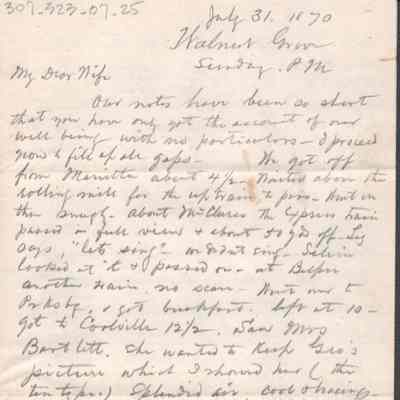 307-323-07.25
July 31. 1870
Walnut Grove
Sunday. P.M
My Dear Wife
Our notes have been so short
that you have only got the account of our
well being with no particulars - I proceed
now to fill up all gaps - We got off
from Marietta about 4 1/2 - Waited above the
rolling mill for the up train to pass - Went on
then snugly. about McClures the Express train
passed in full view & about 50 yds off -
says, "let's sing" - we didn't sing -
looked at it & passed on - at Belpre
another train. no scare - Went over to
Pkbg, & got breakfast. left at 10 -
got to Coolville 12 1/2. Saw Mrs
Bartlett. She wanted to keep Geo's
picture which I showed her (the
tin type) Splendid air, cool & bracing -